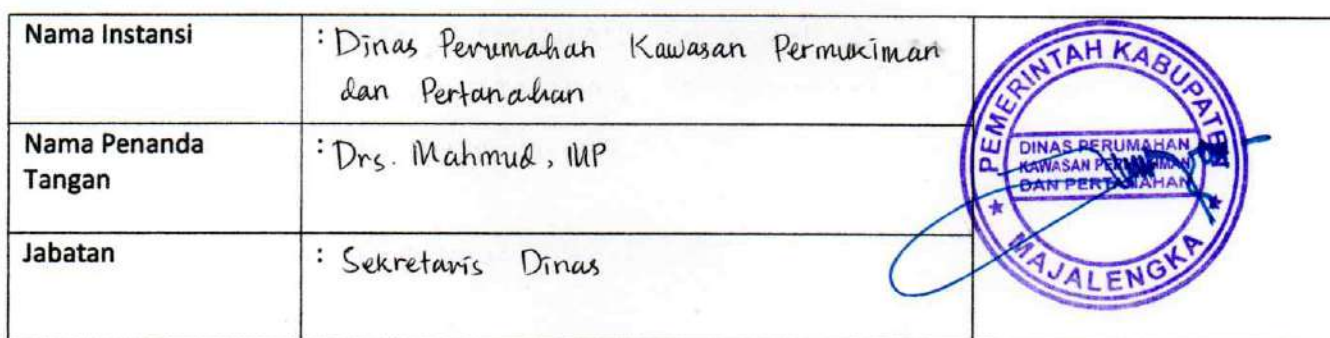 Nama Instansi
: Dinas Perumahan Kawasan Permukiman
dan Pertanahan
Nama Penanda
Tangan
: Drs. Mahmud, MP
Jabatan
: Sekretaris Dinas
PEMERINTAH KABUPATEN
DINAS PERUMAHAN
KAWASAN PERMUKIMAN
DAN PERTANAHAN
MAJALENGKA